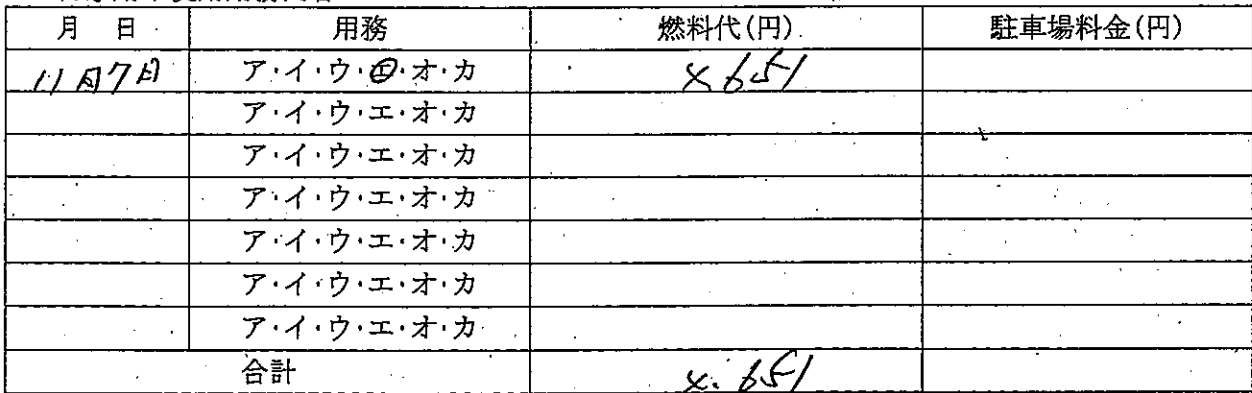 月 日 用務 燃料代(円) 駐車場料金(円)
11月7日 ア・イ・ウ・エ・オ・カ 651
ア・イ・ウ・エ・オ・カ
ア・イ・ウ・エ・オ・カ
ア・イ・ウ・エ・オ・カ
ア・イ・ウ・エ・オ・カ
ア・イ・ウ・エ・オ・カ
ア・イ・ウ・エ・オ・カ
合計 651